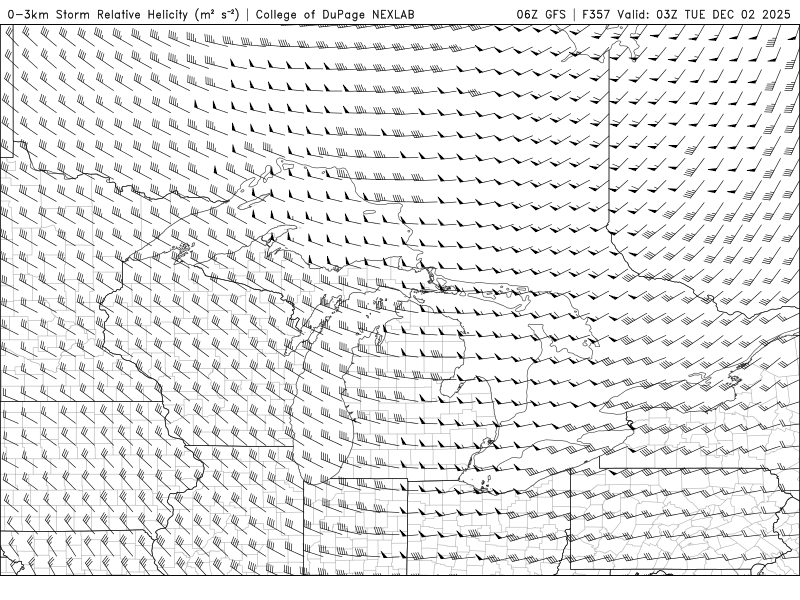 0-3km Storm Relative Helicity (m² s⁻²) | College of DuPage NEXLAB
06Z GFS | F357 Valid: 03Z TUE DEC 02 2025